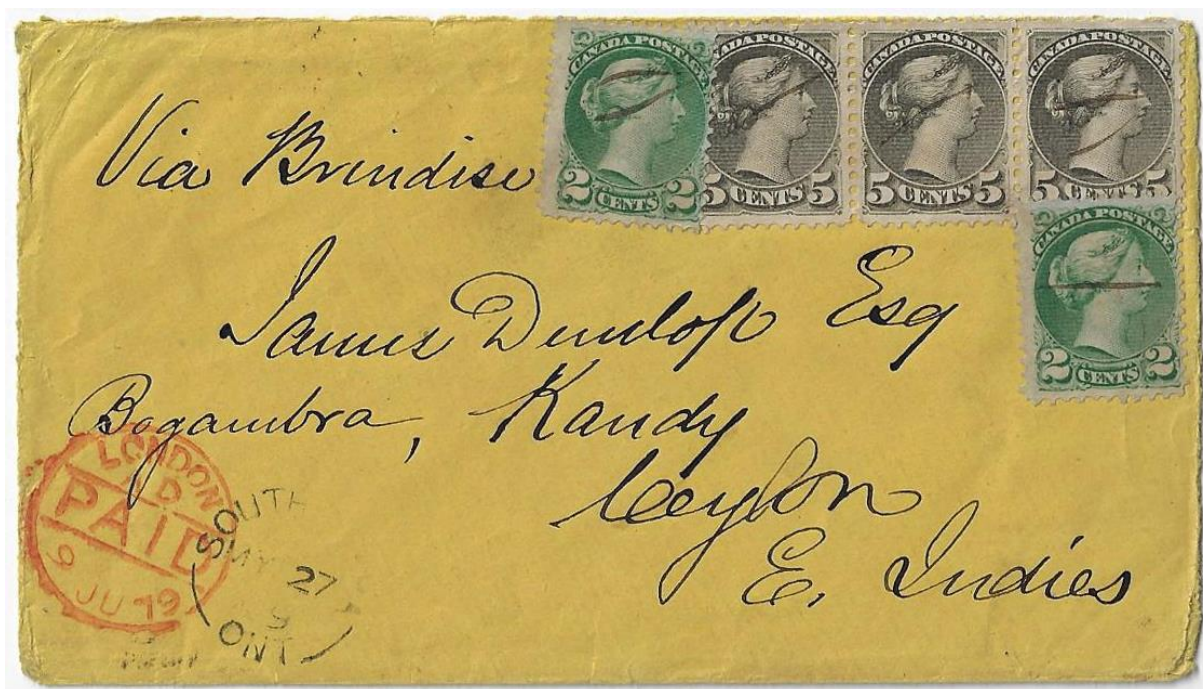 CANADA POSTAGE
2 CENTS 2
CANADA POSTAGE
5 CENTS 5
CANADA POSTAGE
5 CENTS 5
CANADA POSTAGE
5 CENTS 5
CANADA POSTAGE
2 CENTS 2
Via Brindise
James Dunlop Esq
Bogambra, Kandy
Ceylon
E. Indies
LONDON
PAID
9 JU 79
SOUTH
MY 27
9
ONT